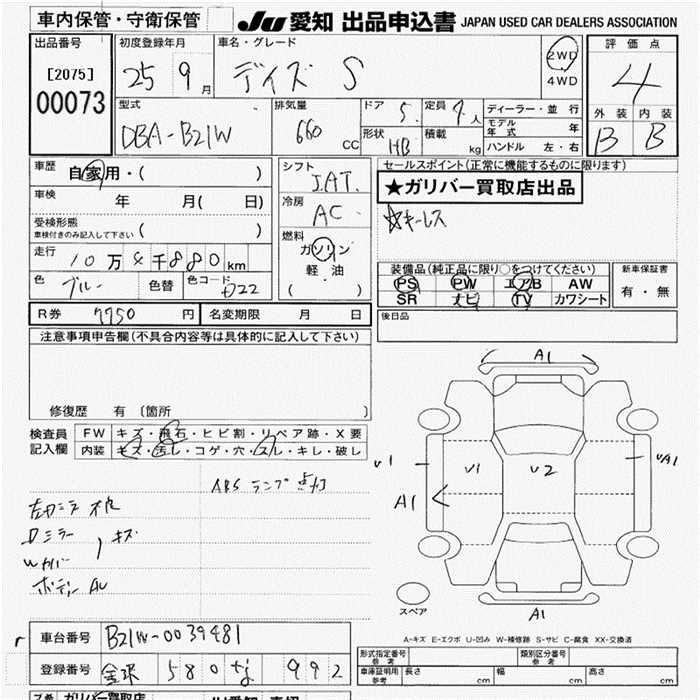 車内保管・守衛保管
JU 愛知 出品申込書 JAPAN USED CAR DEALERS ASSOCIATION
出品番号
[2075]
00073
初度登録年月
25 9月
車名・グレード
デイズ S
2WD
4WD
評価点
4
外装 内装
B B
型式
DBA-B21W
排気量
660 CC
ドア 5
定員 4人
形状 HB
積載 kg
ディーラー・並行
モデル年式 年
ハンドル 左・右
車歴
自家用・( )
車検 年 月( 日)
受検形態
車検付きのみ記入して下さい ( )
走行 10万4千880km
色 ブルー 色替 色コード
R券 7750円 名変期限 月 日
シフト
I.AT.
冷房
AC
燃料
ガソリン
軽油
( ・ )
セールスポイント(正常に機能するものに限ります)
★ガリバー買取店出品
☆キーレス
装備品(純正品に限り○をつけてください)
PS PW エアB AW
SR ナビ TV カワシート
新車保証書
有・無
後日品
注意事項申告欄(不具合内容等は具体的に記入して下さい)
修復歴 有 〔箇所 〕
検査員記入欄
FW キズ・飛石・ヒビ割・リペア跡・X要
内装 キズ・汚レ・コゲ・穴・スレ・キレ・破レ
ABS ランプ点灯
Dミラー
キズ
A1
V1 V1 V2 VA1
A1
A1
スペア
A-キズ E-エクボ U-凹み W-補修跡 S-サビ C-腐食 XX-交換済
車台番号 B21W-0039481
登録番号 金沢 580 な 992
形式指定番号 参考
類別区分番号 参考
車庫証明用 参考 長さ cm 幅 cm 高さ cm
ガリバー買取店
JU愛知